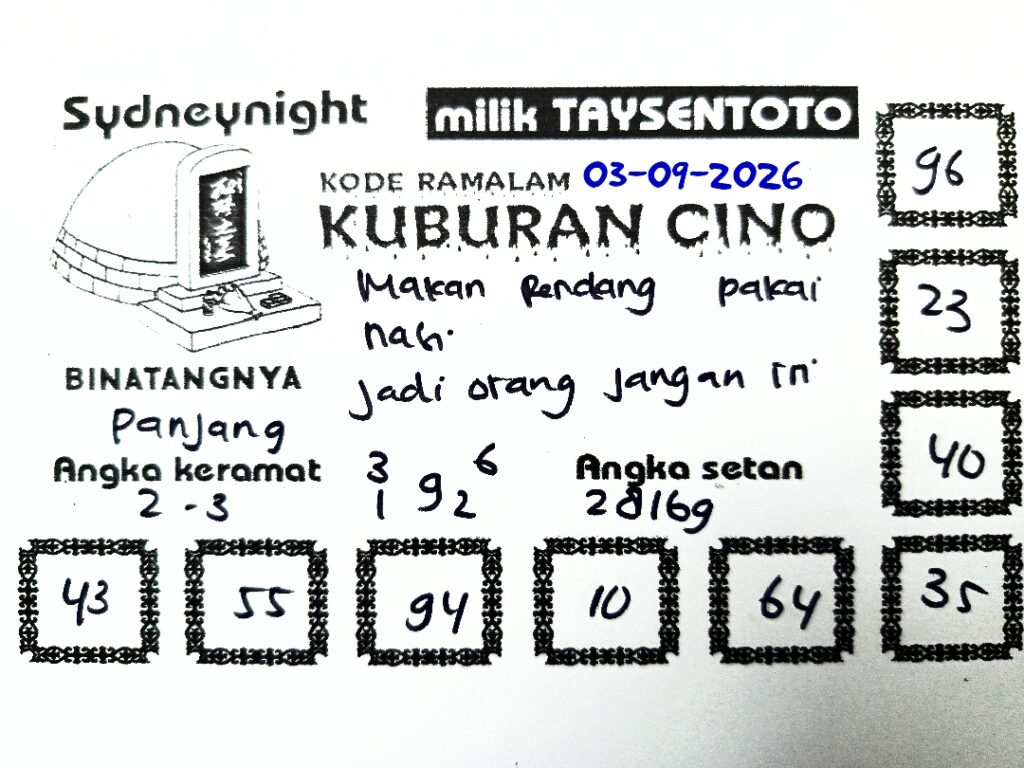 Sydneynight
milik TAYSENTOTO
KODE RAMALAM 03-09-2026
KUBURAN CINO
Makan Rendang pakai
nasi.
Jadi orang jangan iri
BINATANGNYA
Panjang
Angka keramat
2 - 3
3 6
9
1 2
Angka setan
2 8 1 6 9
96
23
40
35
43 55 94 10 64